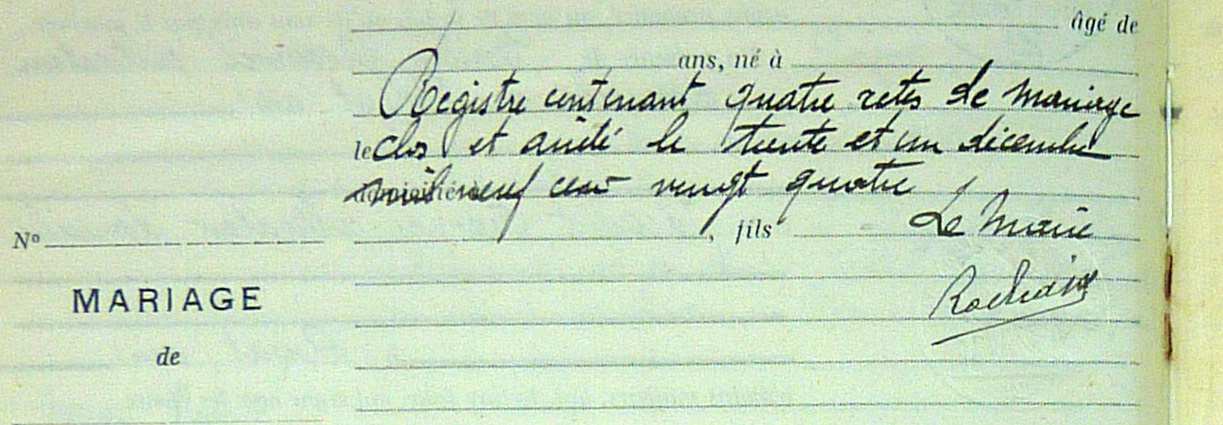 âgé de
ans, né à
Registre contenant quatre actes de mariage
le clos et arrêté le trente et un décembre
mil neuf cent vingt quatre
N° , fils Le Maire
MARIAGE
de